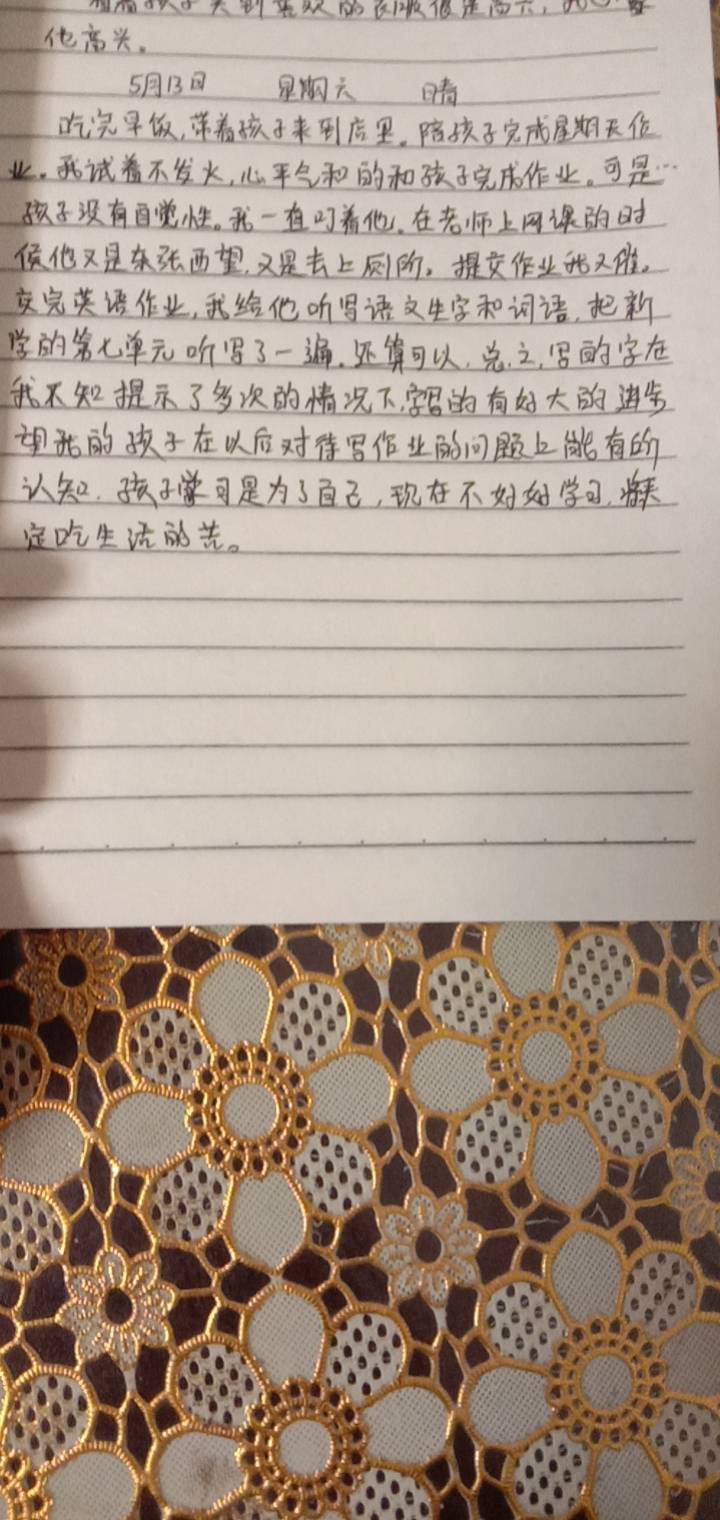 他高兴。
5月13日 星期六 晴
吃完早饭,带着孩子来到店里。陪孩子完成星期天作
业。我试着不发火,心平气和的和孩子完成作业。可是…
孩子没有自觉性。我一直叮着他。在老师上网课的时
候他又是东张西望,又是去上厕所。提交作业我又催。
交完英语作业,我给他听写语文生字和词语,把新
学的第七单元听写了一遍.还算可以.总.之,写的字在
我不知提示了多次的情况下,字写的有好大的进步
望我的孩子在以后对待写作业的问题上能有的
认知.孩子学习是为了自己,现在不好好学习,
定吃生活的苦。